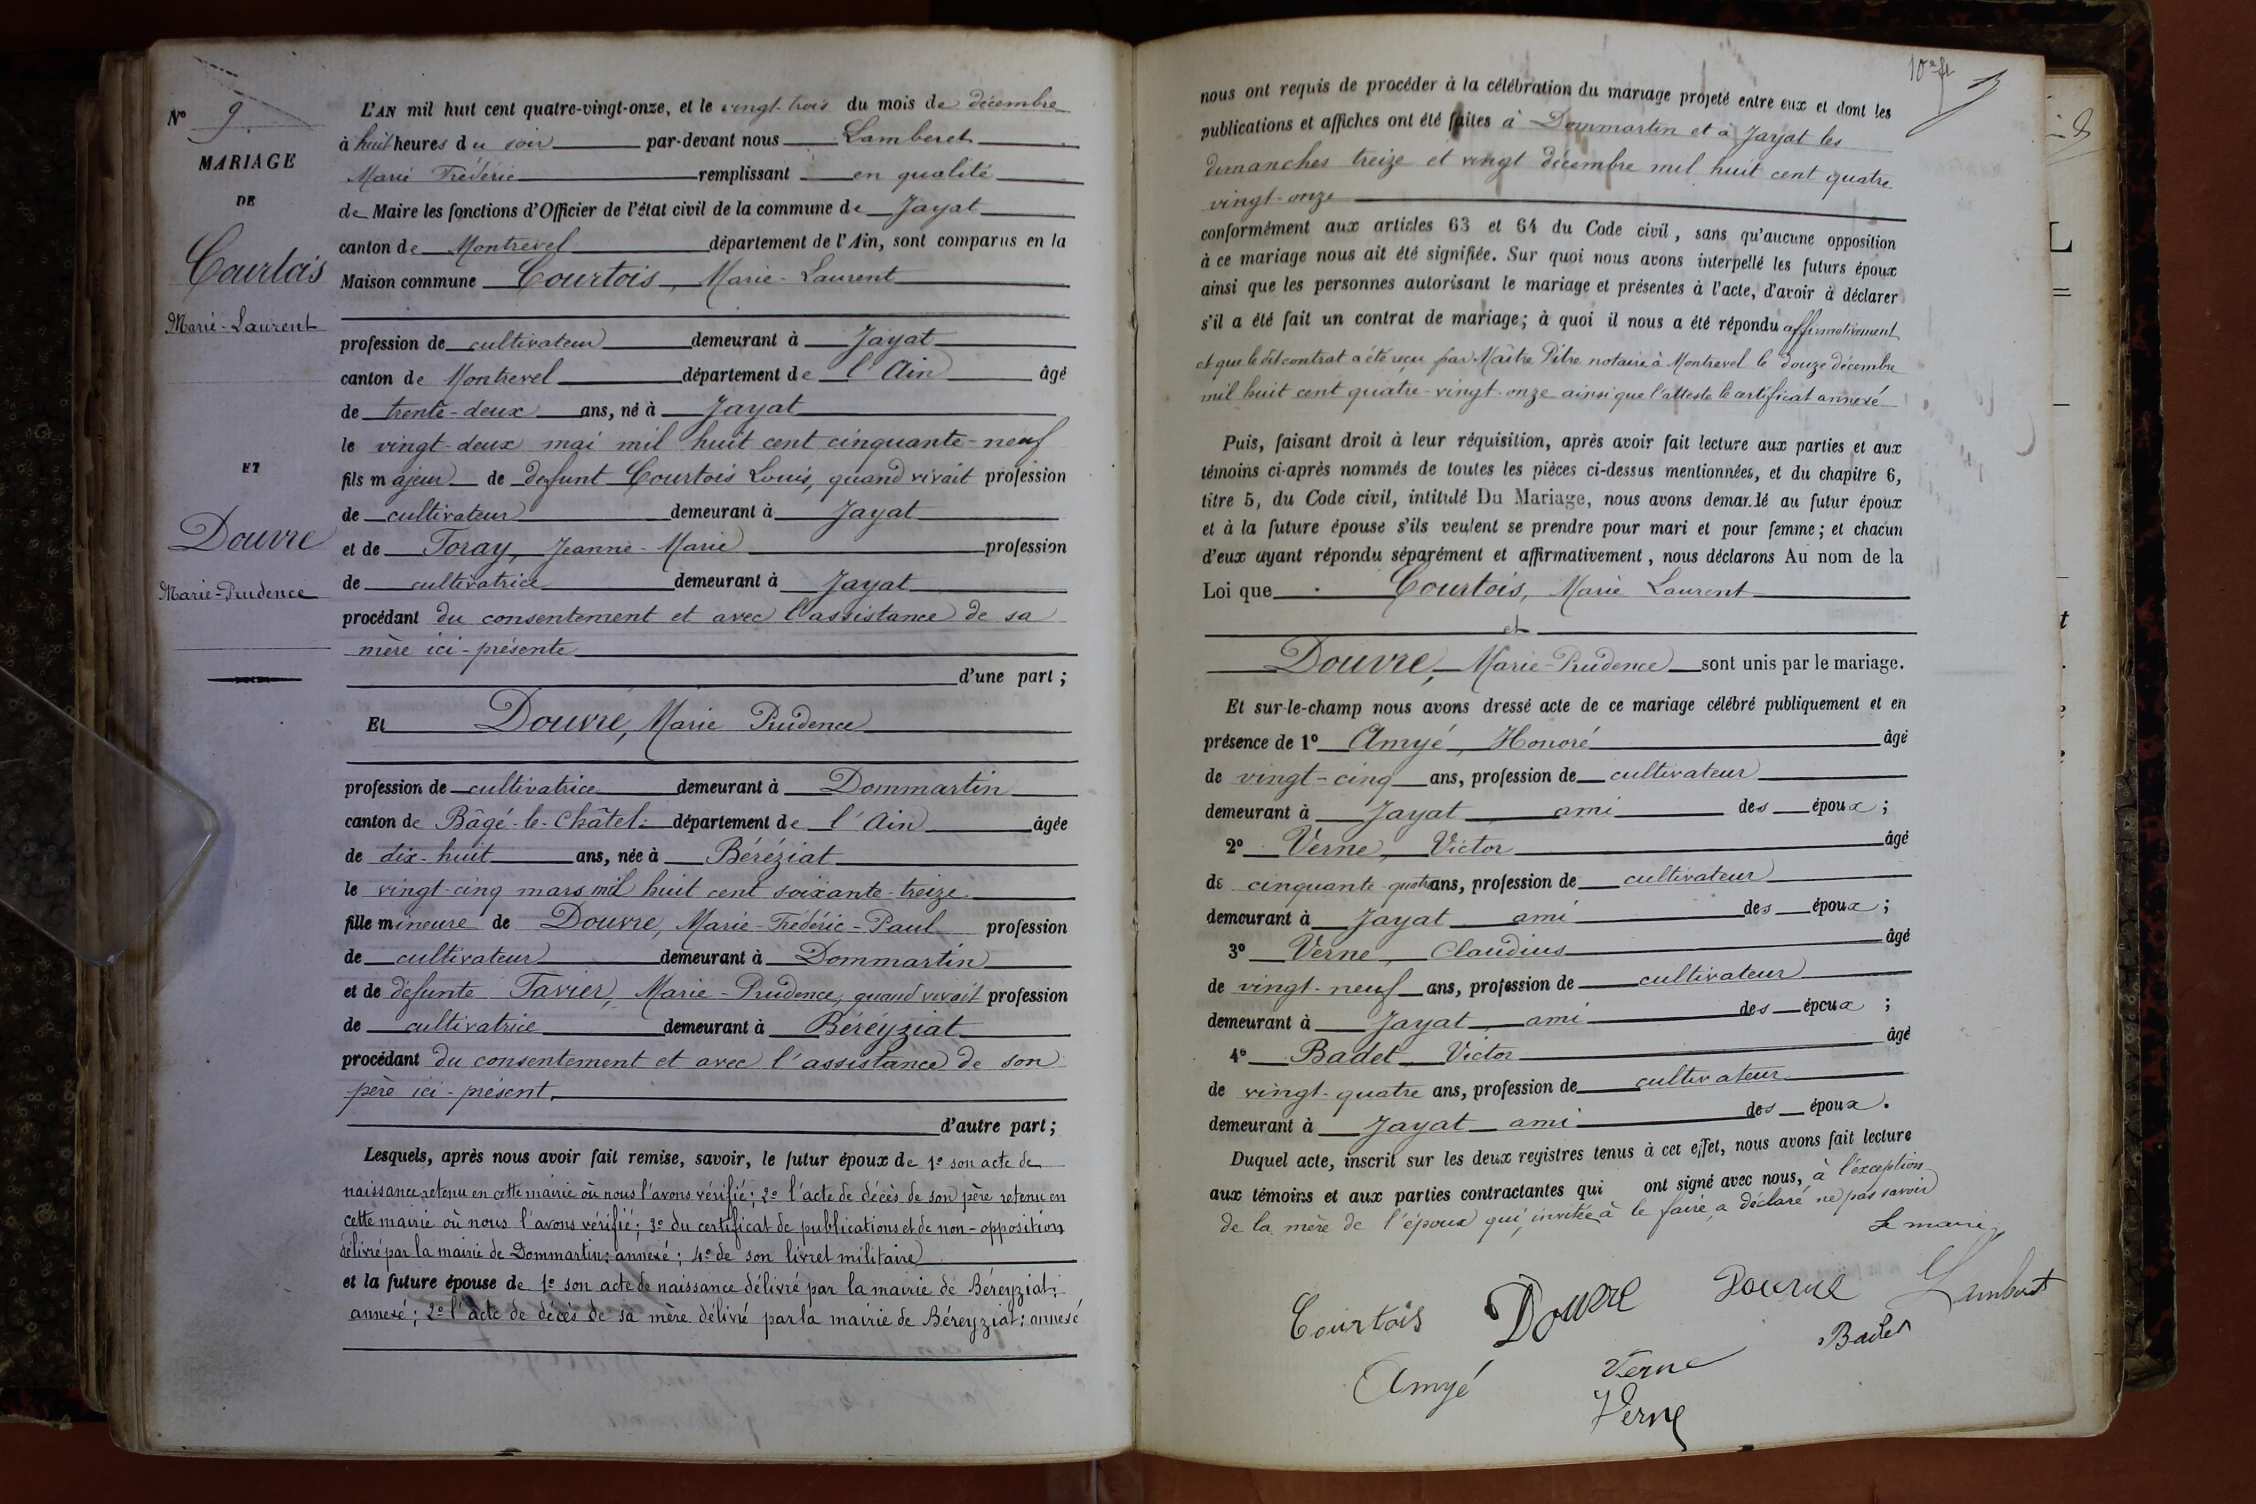 N° 9
MARIAGE
DE
Courtois
Marie-Laurent
ET
Douvre
Marie-Prudence
L'AN mil huit cent quatre-vingt-onze, et le vingt-trois du mois de décembre
à huit heures du soir par-devant nous Lamberet
Marie Frédéric remplissant en qualité
de Maire les fonctions d'Officier de l'état civil de la commune de Jayat
canton de Montrevel département de l'Ain, sont comparus en la
Maison commune Courtois, Marie-Laurent
profession de cultivateur demeurant à Jayat
canton de Montrevel département de l'Ain âgé
de trente-deux ans, né à Jayat
le vingt-deux mai mil huit cent cinquante-neuf
fils majeur de défunt Courtois Louis, quand vivait profession
de cultivateur demeurant à Jayat
et de Toray, Jeanne-Marie profession
de cultivatrice demeurant à Jayat
procédant du consentement et avec l'assistance de sa
mère ici-présente
d'une part ;
Et Douvre, Marie Prudence
profession de cultivatrice demeurant à Dommartin
canton de Bâgé-le-Châtel département de l'Ain âgée
de dix-huit ans, née à Béréziat
le vingt-cinq mars mil huit cent soixante-treize
fille mineure de Douvre, Marie-Frédéric-Paul profession
de cultivateur demeurant à Dommartin
et de défunte Tavier, Marie-Prudence, quand vivait profession
de cultivatrice demeurant à Béréyziat
procédant du consentement et avec l'assistance de son
père ici-présent.
d'autre part ;
Lesquels, après nous avoir fait remise, savoir, le futur époux de 1° son acte de
naissance retenu en cette mairie où nous l'avons vérifié ; 2° l'acte de décès de son père retenu en
cette mairie où nous l'avons vérifié ; 3° du certificat de publications et de non-opposition
délivré par la mairie de Dommartin: annexé ; 4° de son livret militaire
et la future épouse de 1° son acte de naissance délivré par la mairie de Béreyziat:
annexé ; 2° l'acte de décès de sa mère délivré par la mairie de Béreyziat: annexé
nous ont requis de procéder à la célébration du mariage projeté entre eux et dont les
publications et affiches ont été faites à Dommartin et à Jayat les
dimanches treize et vingt décembre mil huit cent quatre
vingt-onze
conformément aux articles 63 et 64 du Code civil, sans qu'aucune opposition
à ce mariage nous ait été signifiée. Sur quoi nous avons interpellé les futurs époux
ainsi que les personnes autorisant le mariage et présentes à l'acte, d'avoir à déclarer
s'il a été fait un contrat de mariage ; à quoi il nous a été répondu affirmativement
et que le dit contrat a été reçu par Maître Pitre notaire à Montrevel le douze décembre
mil huit cent quatre-vingt-onze ainsi que l'atteste le certificat annexé
Puis, faisant droit à leur réquisition, après avoir fait lecture aux parties et aux
témoins ci-après nommés de toutes les pièces ci-dessus mentionnées, et du chapitre 6,
titre 5, du Code civil, intitulé Du Mariage, nous avons demandé au futur époux
et à la future épouse s'ils veulent se prendre pour mari et pour femme ; et chacun
d'eux ayant répondu séparément et affirmativement, nous déclarons Au nom de la
Loi que Courtois, Marie Laurent
et
Douvre, Marie-Prudence sont unis par le mariage.
Et sur-le-champ nous avons dressé acte de ce mariage célébré publiquement et en
présence de 1° Amyé, Honoré âgé
de vingt-cinq ans, profession de cultivateur
demeurant à Jayat ami des époux ;
2° Verne, Victor âgé
de cinquante-quatre ans, profession de cultivateur
demeurant à Jayat ami des époux ;
3° Verne, Claudius âgé
de vingt-neuf ans, profession de cultivateur
demeurant à Jayat, ami des époux ;
4° Badet Victor âgé
de vingt-quatre ans, profession de cultivateur
demeurant à Jayat ami des époux.
Duquel acte, inscrit sur les deux registres tenus à cet effet, nous avons fait lecture
aux témoins et aux parties contractantes qui ont signé avec nous, à l'exception
de la mère de l'époux qui, invitée à le faire, a déclaré ne pas savoir
Le maire
Courtois Douvre Douvre Lamberet
Amyé Verne Badet
Verne